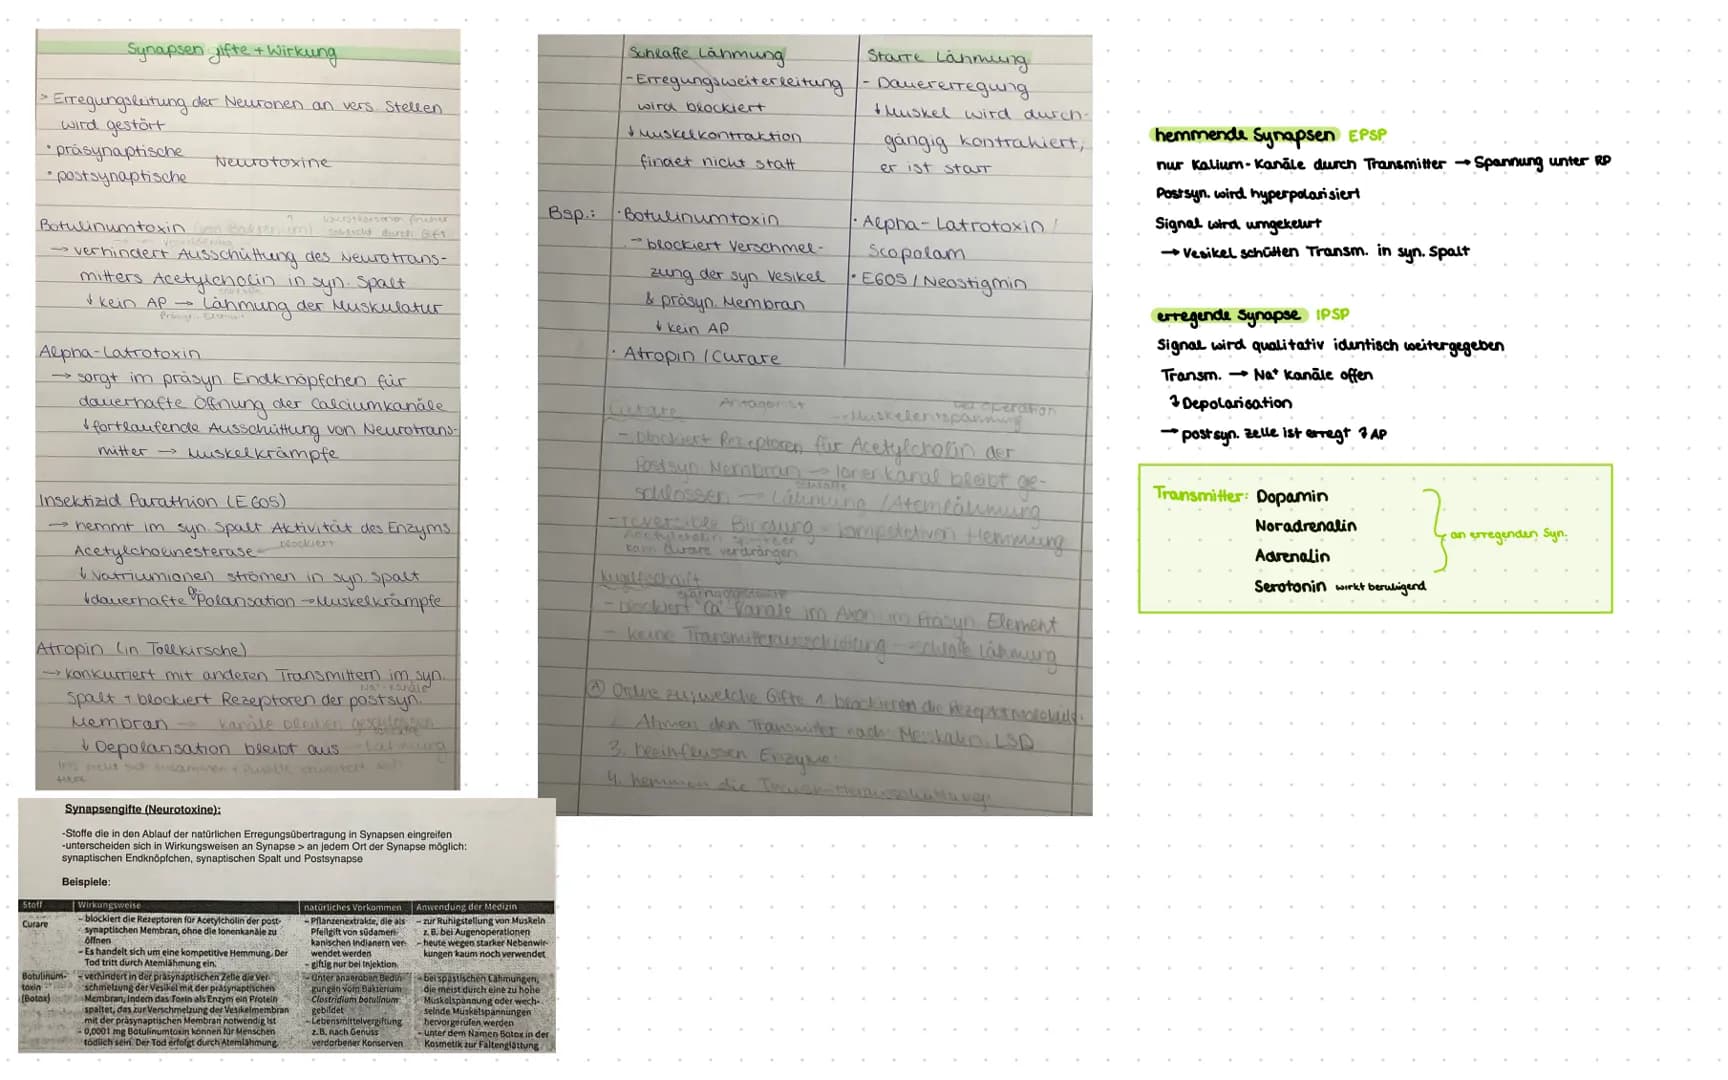 Synapsengifte + Wirkung
> Erregungsleitung der Neuronen an vers. Stellen
wird gestört
• präsynaptische
Neurotoxine
• postsynaptische
Botulinumtoxin (von Bakterium)
→ verhindert Ausschüttung des Neurotrans-
mitters Acetylcholin in syn. Spalt
↓ kein AP → Lähmung der Muskulatur
Alpha-Latrotoxin
→ sorgt im präsyn. Endknöpfchen für
dauerhafte Öffnung der Calciumkanäle
↓ fortlaufende Ausschüttung von Neurotrans-
mitter → Muskelkrämpfe
Insektizid Parathion (E605)
→ hemmt im syn. Spalt Aktivität des Enzyms
Acetylcholinesterase blockiert
↓ Natriumionen strömen in syn. Spalt
↓ dauerhafte DePolarisation → Muskelkrämpfe
Atropin (in Tollkirsche)
→ konkurriert mit anderen Transmittern im syn.
Spalt + blockiert Rezeptoren der postsyn.
Na⁺-Kanäle
Membran → Kanäle bleiben geschlossen
↓ Depolarisation bleibt aus Lähmung
Schlaffe Lähmung
- Erregungsweiterleitung
wird blockiert
↓ Muskelkontraktion
findet nicht statt
Starre Lähmung
- Dauererregung
↓ Muskel wird durch-
gängig kontrahiert,
er ist starr
Bsp.: • Botulinumtoxin
→ blockiert Verschmel-
zung der syn. Vesikel
& präsyn. Membran
↓ kein AP
• Atropin / Curare
• Alpha-Latrotoxin /
Scopolam
• E605 / Neostigmin
Curare Antagonist → Muskelentspannung bei Operation
- blockiert Rezeptoren für Acetylcholin der
Postsyn. Membran → Ionenkanal bleibt ge-
schlossen → schlaffe Lähmung / Atemlähmung
- reversible Bindung = kompetitiven Hemmung
Acetylcholin
kann Curare verdrängen
- blockiert Ca Kanäle im Axon im Präsyn. Element
- keine Transmitterausschüttung → schlaffe Lähmung
Ⓐ Ordne zu, welche Gifte 1. blockieren die Rezeptormoleküle
2. Ahmen den Transmitter nach Meskalin, LSD
3. beeinflussen Enzyme
4. hemmen die
hemmende Synapsen EPSP
nur Kalium-Kanäle durch Transmitter → Spannung unter RP
Postsyn. wird hyperpolarisiert
Signal wird umgekehrt
→ Vesikel schütten Transm. in syn. Spalt
erregende Synapse IPSP
Signal wird qualitativ identisch weitergegeben
Transm. → Na⁺ Kanäle offen
↴ Depolarisation
→ postsyn. Zelle ist erregt ↴ AP
Transmitter: Dopamin
Noradrenalin
an erregenden Syn.
Adrenalin
Serotonin wirkt beruhigend
Synapsengifte (Neurotoxine):
-Stoffe die in den Ablauf der natürlichen Erregungsübertragung in Synapsen eingreifen
-unterscheiden sich in Wirkungsweisen an Synapse > an jedem Ort der Synapse möglich:
synaptischen Endknöpfchen, synaptischen Spalt und Postsynapse
Beispiele:
Stoff Wirkungsweise natürliches Vorkommen Anwendung der Medizin
Curare
- blockiert die Rezeptoren für Acetylcholin der post-
synaptischen Membran, ohne die Ionenkanäle zu
öffnen
- Es handelt sich um eine kompetitive Hemmung. Der
Tod tritt durch Atemlähmung ein.
- Pflanzenextrakte, die als
Pfeilgift von südameri-
kanischen Indianern ver-
wendet werden
- giftig nur bei Injektion
- zur Ruhigstellung von Muskeln
z. B. bei Augenoperationen
- heute wegen starker Nebenwir-
kungen kaum noch verwendet
Botulinum-
toxin
(Botox)
- verhindert in der präsynaptischen Zelle die Ver-
schmelzung der Vesikel mit der präsynaptischen
Membran, indem das Toxin als Enzym ein Protein
spaltet, das zur Verschmelzung der Vesikelmembran
mit der präsynaptischen Membran notwendig ist
- 0,0001 mg Botulinumtoxin können für Menschen
tödlich sein. Der Tod erfolgt durch Atemlähmung.
- unter anaeroben Bedin-
gungen vom Bakterium
Clostridium botulinum
gebildet
- Lebensmittelvergiftung
z.B. nach Genuss
verdorbener Konserven
- bei spastischen Lähmungen,
die meist durch eine zu hohe
Muskelspannung oder wech-
selnde Muskelspannungen
hervorgerufen werden
- unter dem Namen Botox in der
Kosmetik zur Faltenglättung